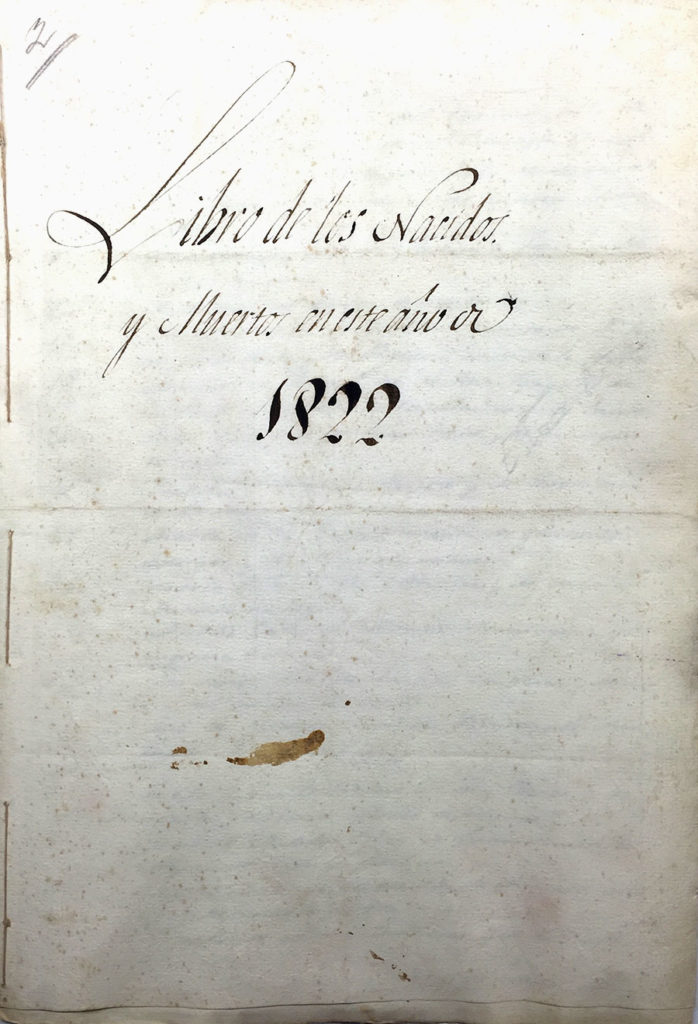 2
Libro de los Nacidos.
y Muertos en este año de
1822